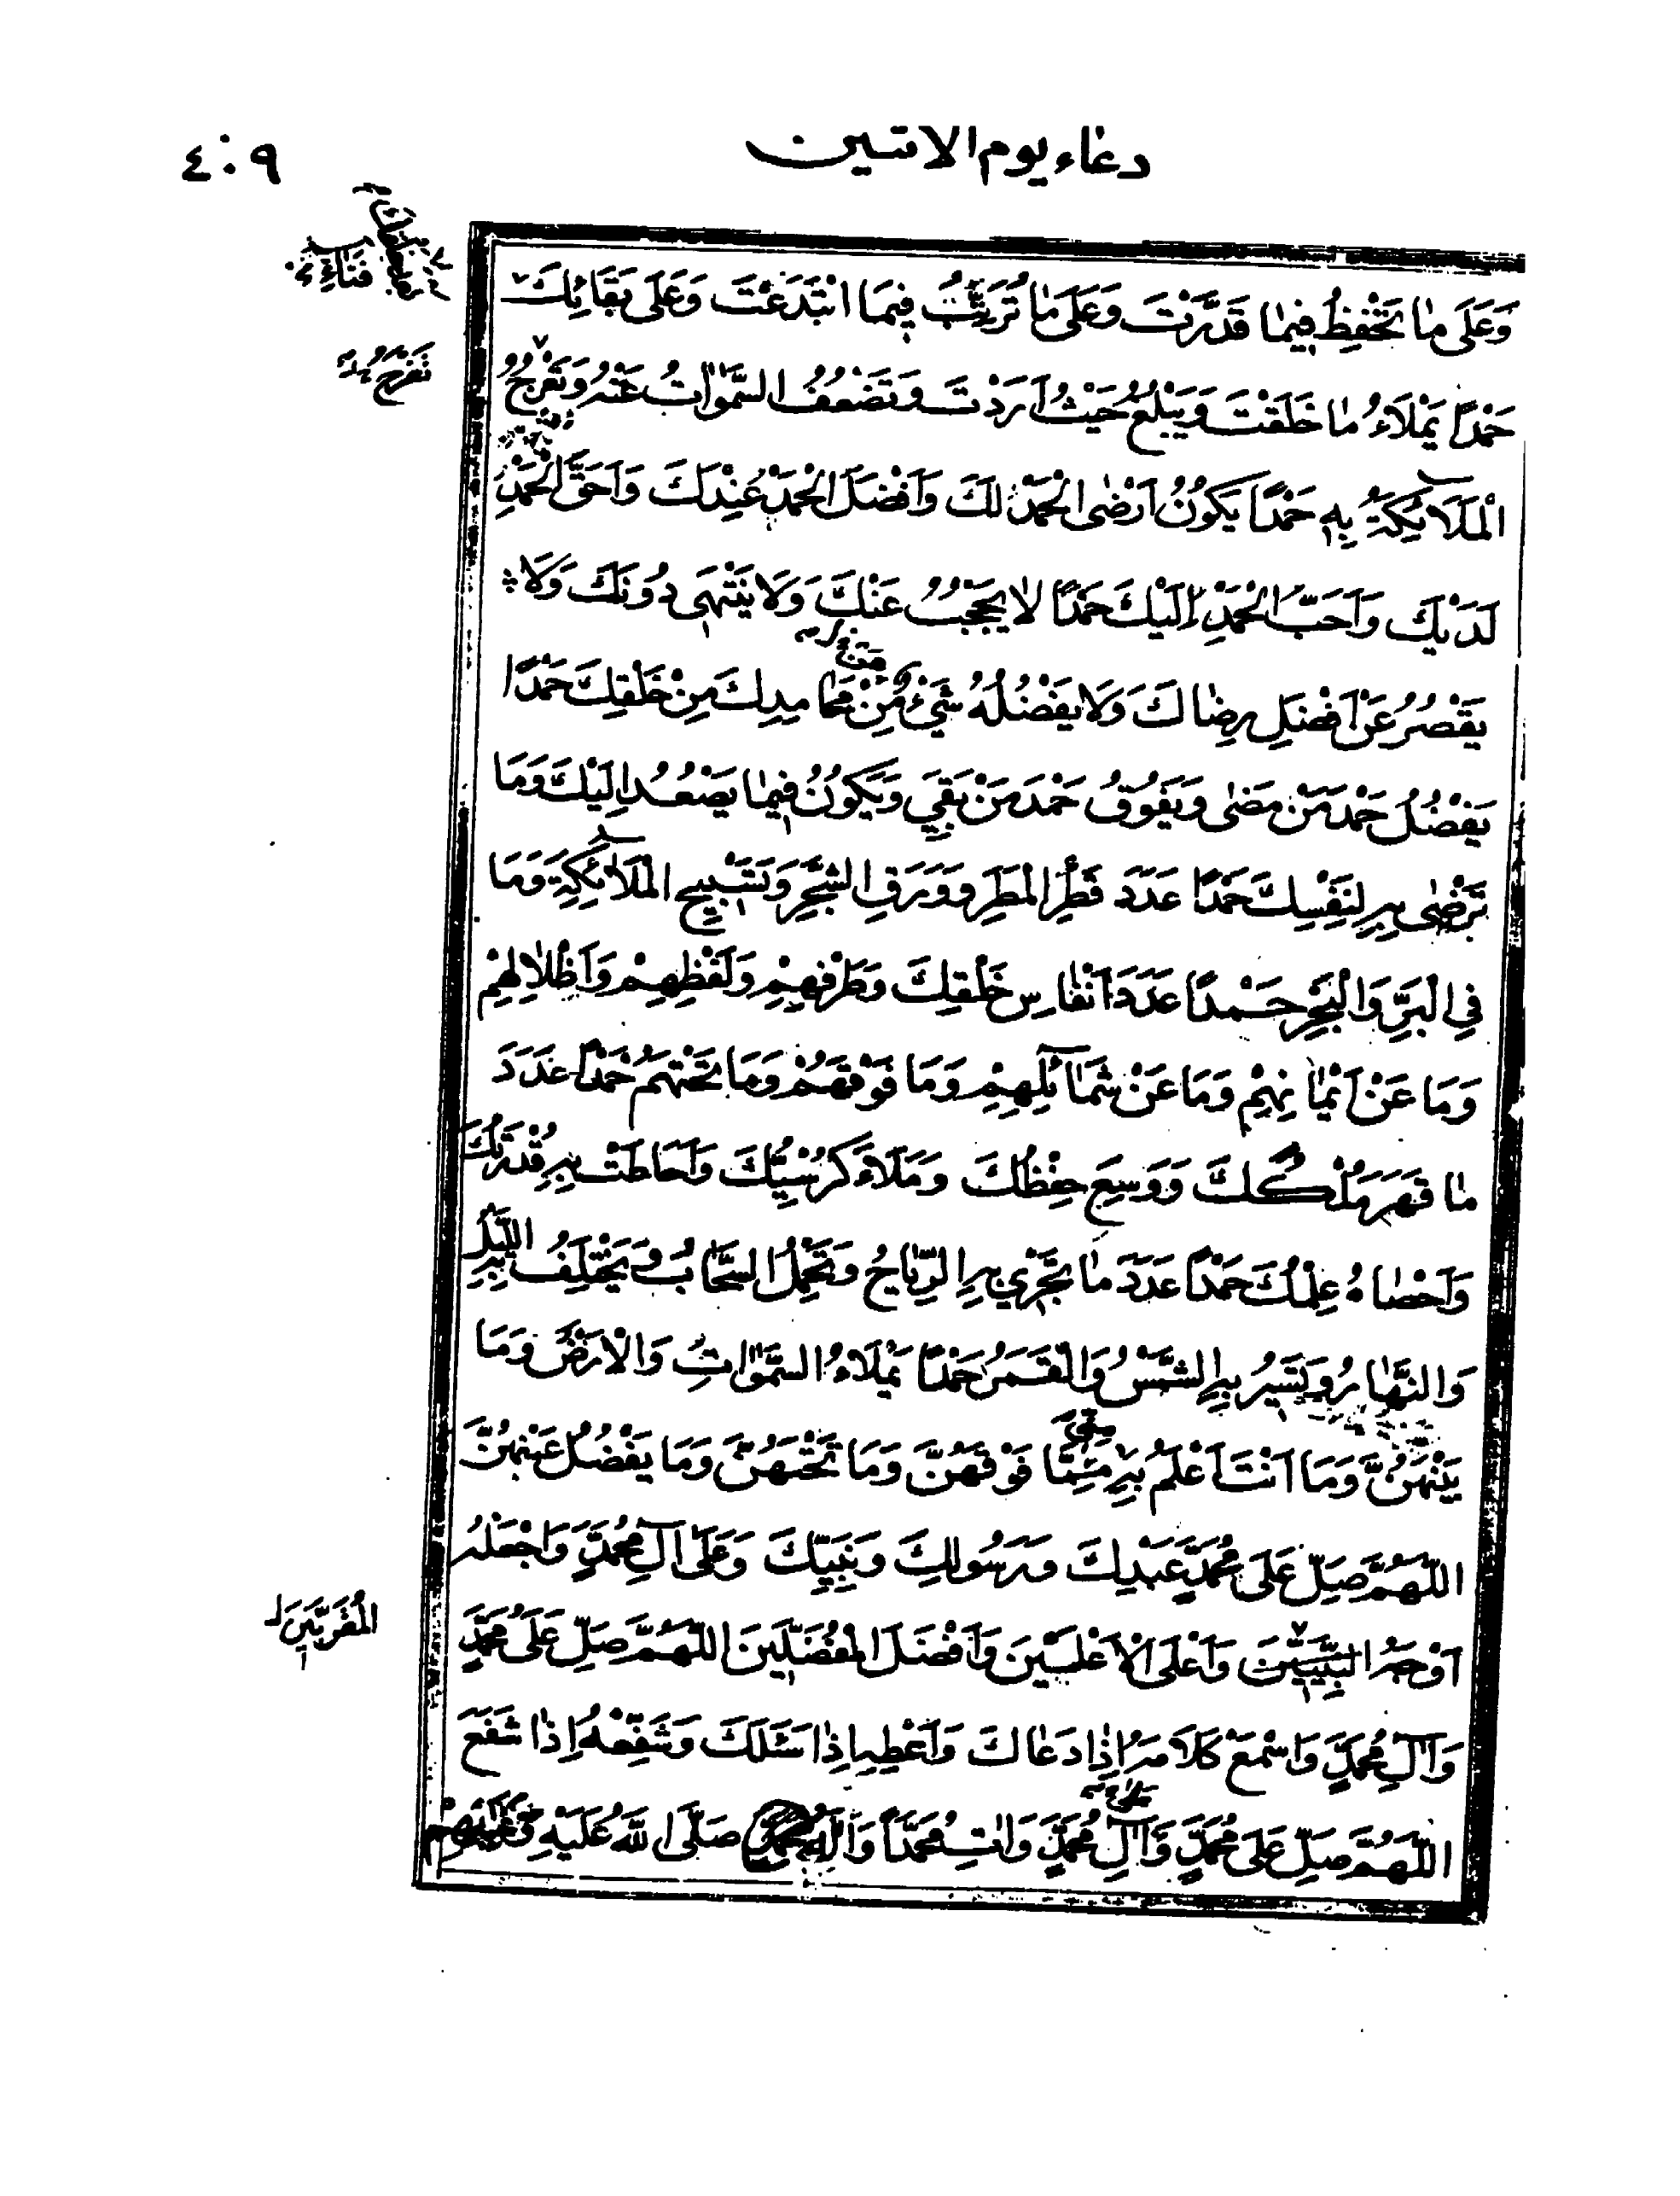 ٤٠٩
دعاء يوم الاثنين
فَنَائِكَ
وَعَلَى مٰا تَحْفَظُ فِيمٰا قَدَّرْتَ وَعَلَى مٰا تُرَتِّبُ فِيمَا ابْتَدَعْتَ وَعَلَى بَقَائِكَ
حَمْدًا يَمْلَاءُ مٰا خَلَقْتَ وَيَبْلُغُ حَيْثُ اَرَدْتَ وَتَضْعُفُ السَّمٰوَاتُ عَنْهُ وَتَعْرُجُ
تَفَرَّجُ
الْمَلَائِكَةُ بِهِ حَمْدًا يَكُونُ اَرْضَى الْحَمْدِ لَكَ وَاَفْضَلَ الْحَمْدِ عِنْدَكَ وَاَحَقَّ الْحَمْدِ
لَدَيْكَ وَاَحَبَّ الْحَمْدِ اِلَيْكَ حَمْدًا لٰا يُحْجَبُ عَنْكَ وَلَا يَنْتَهِى دُونَكَ وَلَا
يَقْصُرُ عَنْ اَفْضَلِ رِضٰاكَ وَلَا يَفْضُلُهُ شَئٌ مِنْ مَحَامِدِكَ مِنْ خَلْقِكَ حَمْدًا
يَفْضُلُ حَمْدَ مَنْ مَضٰى وَيَفُوقُ حَمْدَ مَنْ بَقِيَ وَيَكُونُ فِيمٰا يَصْعُدُ اِلَيْكَ وَمَا
تَرْضٰى بِهِ لِنَفْسِكَ حَمْدًا عَدَدَ قَطْرِ الْمَطَرِ وَوَرَقِ الشَّجَرِ وَتَسْبِيحِ الْمَلَائِكَةِ وَمَا
فِي الْبَرِّ وَالْبَحْرِ حَمْدًا عَدَدَ اَنْفٰاسِ خَلْقِكَ وَطَرْفِهِمْ وَلَفْظِهِمْ وَاَظْلَالِهِمْ
وَمَا عَنْ اَيْمٰانِهِمْ وَمَا عَنْ شَمَائِلِهِمْ وَمَا فَوْقَهُمْ وَمَا تَحْتَهُمْ حَمْدًا عَدَدَ
مٰا قَهَرَ مُلْكُكَ وَوَسِعَ حِفْظُكَ وَمَلَاءَ كُرْسِيُّكَ وَاَحَاطَتْ بِهِ قُدْرَتُكَ
وَاَحْصٰاهُ عِلْمُكَ حَمْدًا عَدَدَ مٰا تَجْرِي بِهِ الرِّيَاحُ وَتَحْمِلُ السَّحَابُ وَيَخْتَلِفُ بِهِ اللَّيْلُ
وَالنَّهٰارُ وَتَسِيرُ بِهِ الشَّمْسُ وَالْقَمَرُ حَمْدًا يَمْلَاءُ السَّمٰوَاتِ وَالْاَرْضَ وَمَا
بَيْنَهُنَّ وَمَا اَنْتَ اَعْلَمُ بِهِ مِمَّا فَوْقَهُنَّ وَمَا تَحْتَهُنَّ وَمَا يَفْضُلُ عَنْهُنَّ
اللّٰهُمَّ صَلِّ عَلَى مُحَمَّدٍ عَبْدِكَ وَرَسُولِكَ وَنَبِيِّكَ وَعَلَى آلِ مُحَمَّدٍ وَاجْعَلْهُ
اَوْجَهَ النَّبِيِّينَ وَاَعْلَى الْاَعْلَيْنَ وَاَفْضَلَ الْمُفَضَّلِينَ اللّٰهُمَّ صَلِّ عَلَى مُحَمَّدٍ
الْمُقَرَّبِينَ
وَآلِ مُحَمَّدٍ وَاسْمَعْ كَلَامَهُ اِذٰا دَعٰاكَ وَاَعْطِهِ اِذٰا سَئَلَكَ وَشَفِّعْهُ اِذٰا شَفَعَ
اللّٰهُمَّ صَلِّ عَلَى مُحَمَّدٍ وَآلِ مُحَمَّدٍ وَاٰتِ مُحَمَّدًا وَآلَ مُحَمَّدٍ صَلَّى اللّٰهُ عَلَيْهِ وَعَلَيْهِمْ